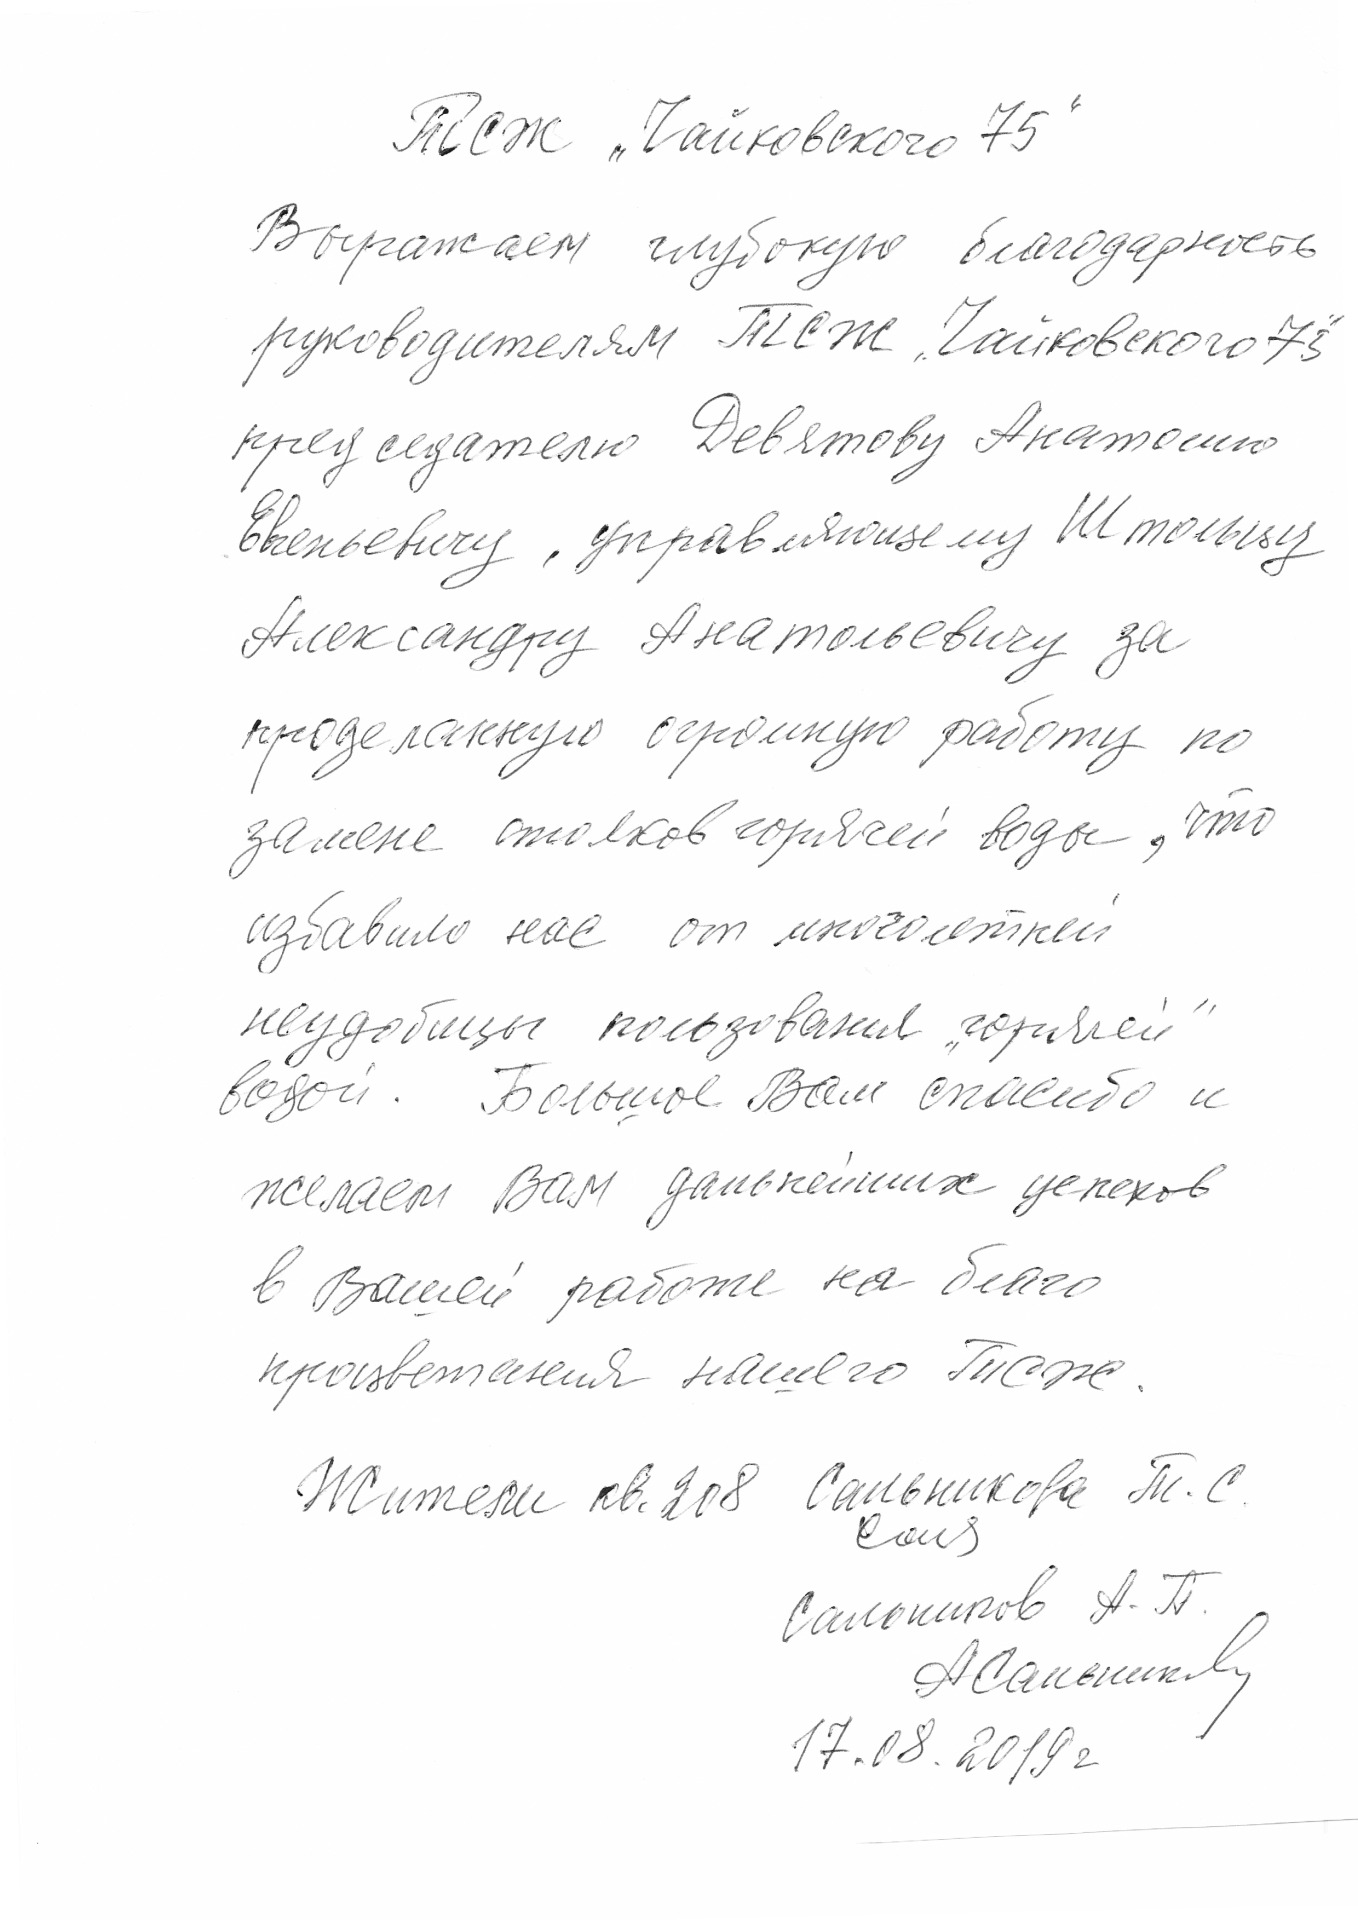 ТСЖ „Чайковского 75“
Выражаем глубокую благодарность
руководителям ТСЖ „Чайковского 75“
председателю Девятову Анатолию
Евгеньевичу, управляющему Штольцу
Александру Анатольевичу за
проделанную огромную работу по
замене стояков горячей воды, что
избавило нас от многолетней
неудобицы пользования „горячей“
водой. Большое Вам спасибо и
желаем Вам дальнейших успехов
в Вашей работе на благо
процветания нашего ТСЖ.
Жители кв. 208 Сальникова Т. С.
Сальников А. П.
АСальников
17.08.2019г